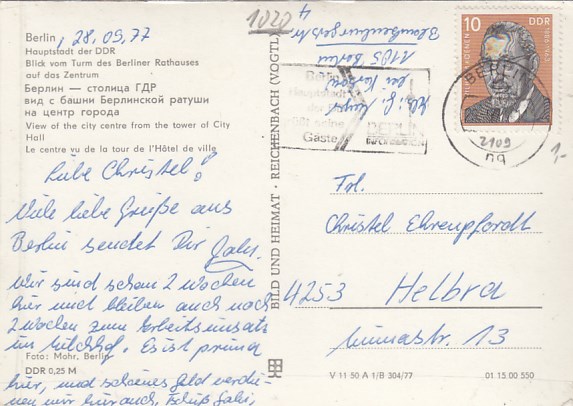 Berlin, 28.09.77
Hauptstadt der DDR
Blick vom Turm des Berliner Rathauses
auf das Zentrum
Берлин — столица ГДР
вид с башни Берлинской ратуши
на центр города
View of the city centre from the tower of City
Hall
Le centre vu de la tour de l'Hôtel de ville
Liebe Christel!
Viele liebe Grüße aus
Berlin sendet Dir Gabi.
Wir sind schon 2 Wochen
hier und bleiben auch noch
2 Wochen zum Arbeitseinsatz
im Milchhof. Es ist prima
Foto: Mohr, Berlin
DDR 0,25 M
hier, und schönes Geld verdie-
nen wir hier auch, Tschüß Gabi,
1020
BILD UND HEIMAT · REICHENBACH (VOGTL)
4
1195 Berlin
bei
Berlin
Hauptstadt
der DDR
Gäste
BERLIN
10
DDR
BERLIN
2109
1,-
Frl.
Christel Ehrenpfordt
4253 Helbra
str. 13
V 11 50 A 1/B 304/77
01.15 00 550